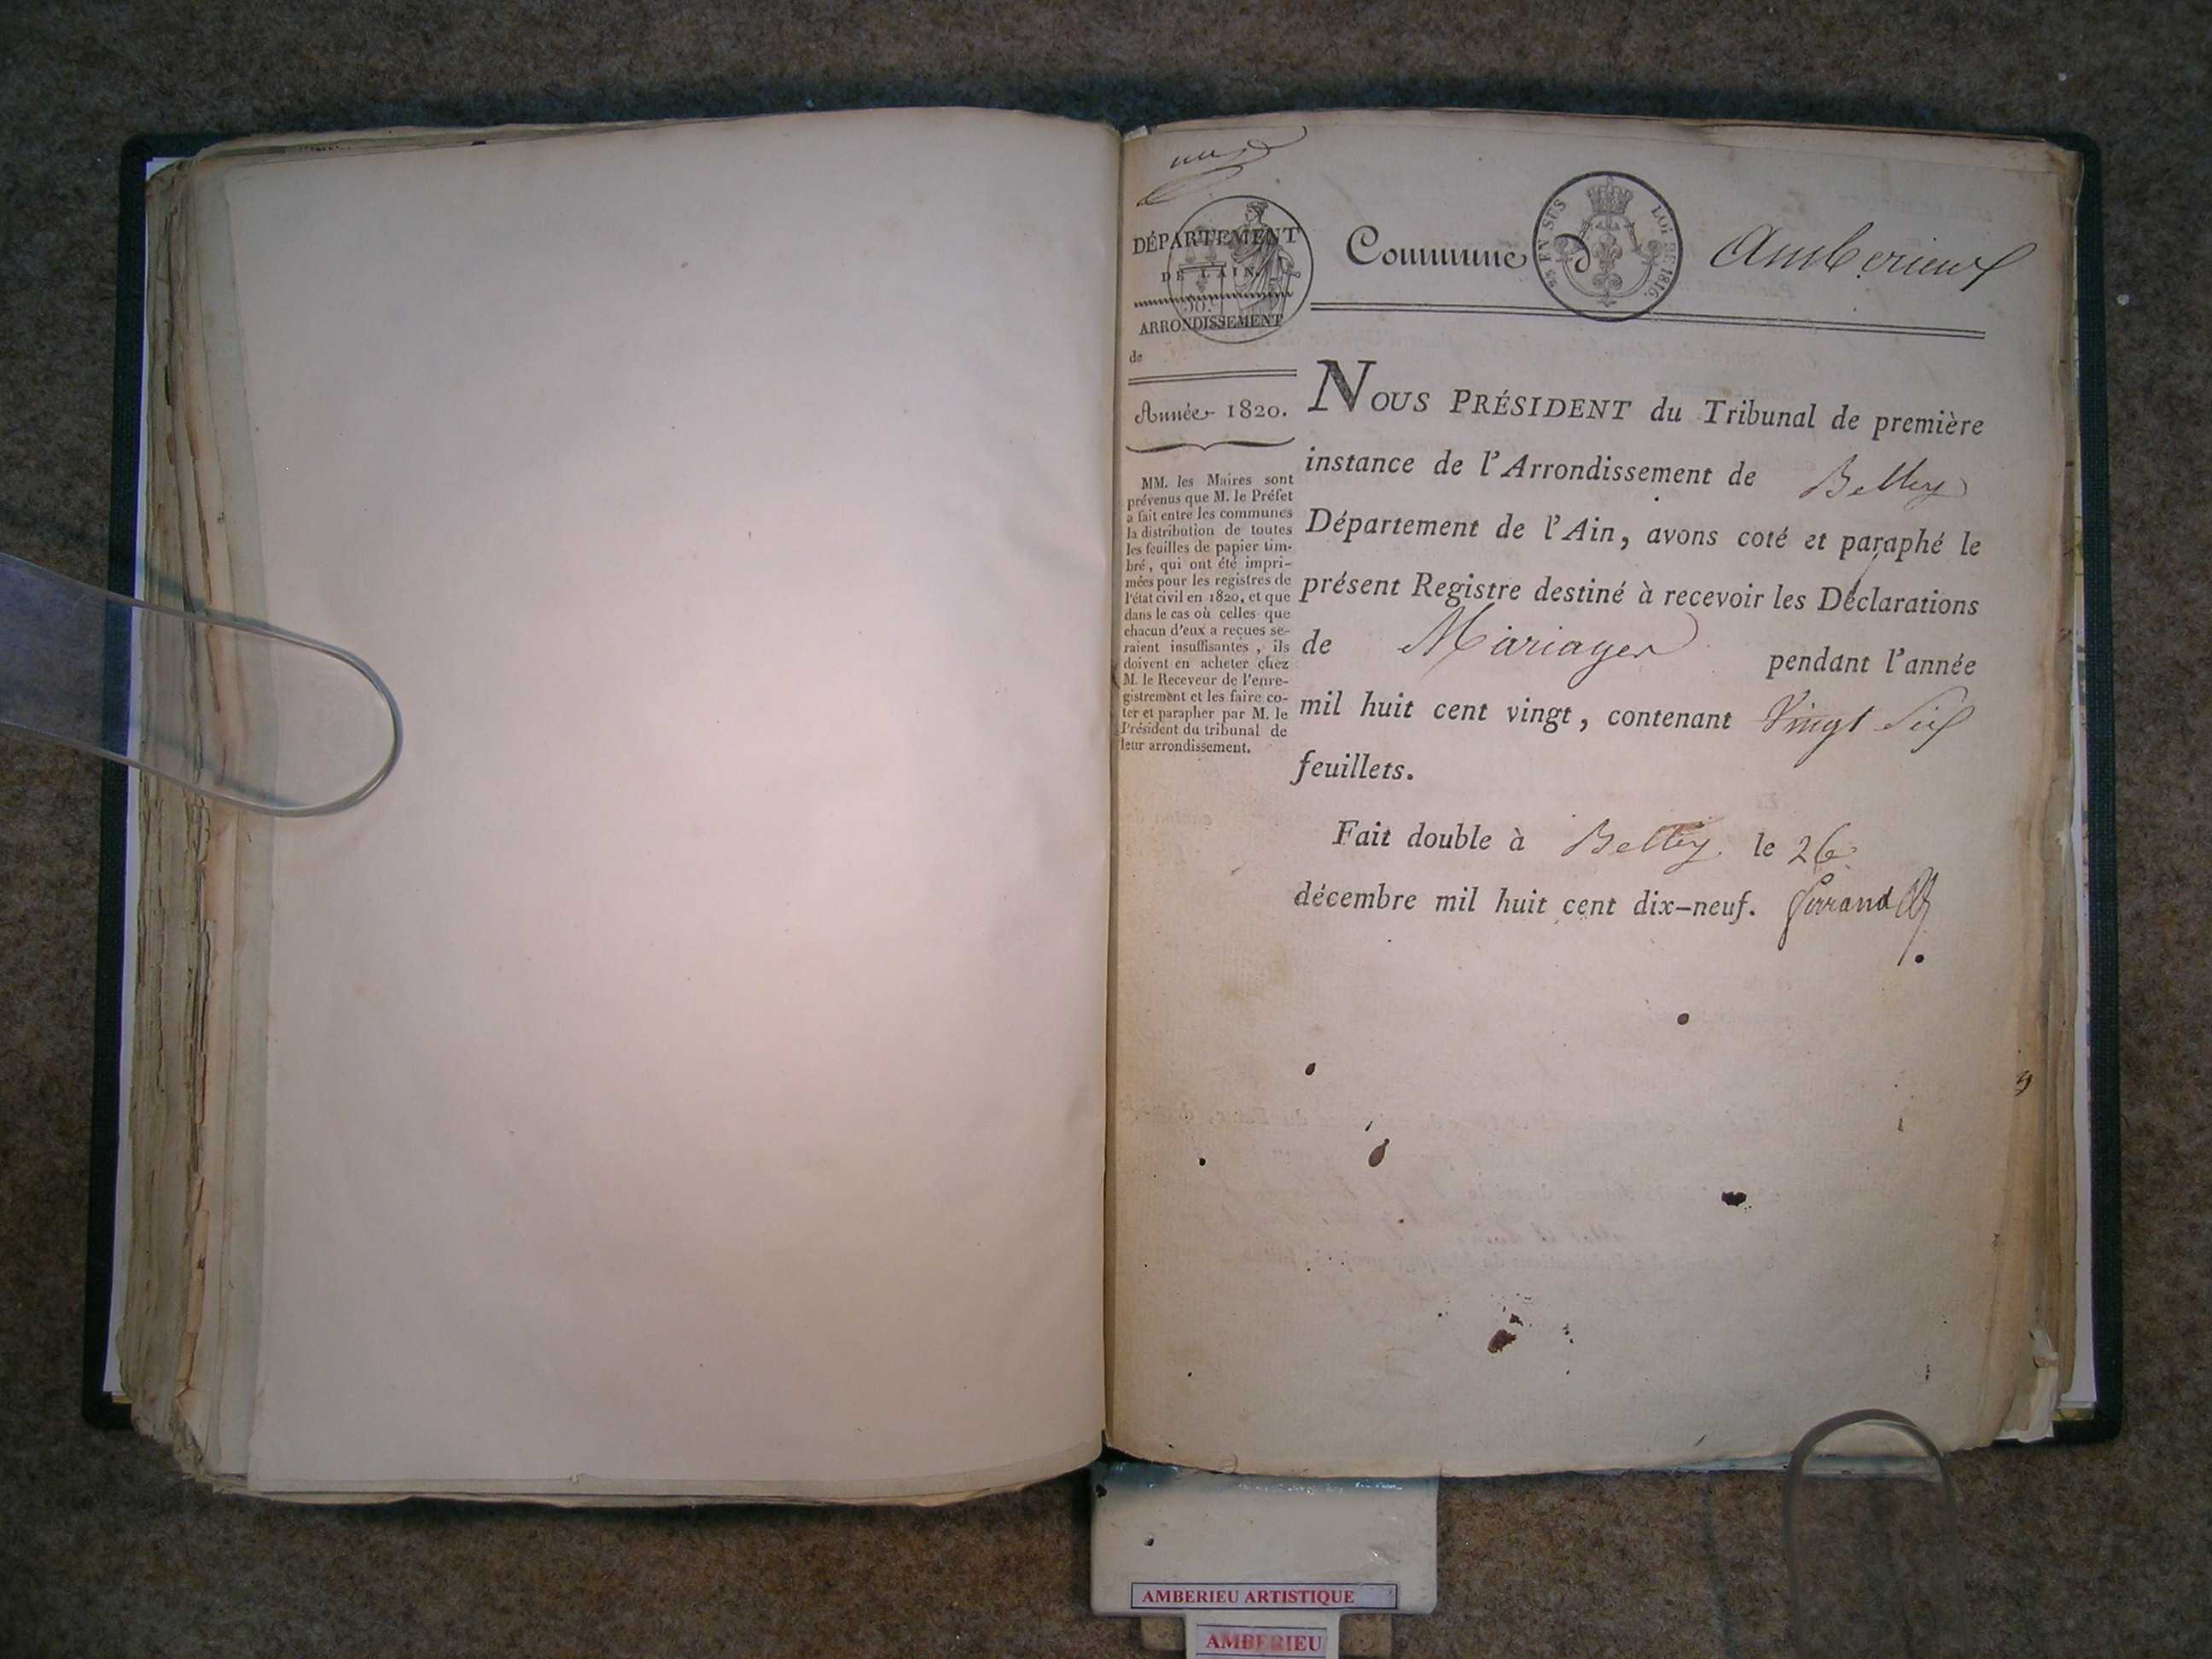 DÉPARTEMENT
DE L'AIN.
ARRONDISSEMENT
de
Année 1820.
MM. les Maires sont
prévenus que M. le Préfet
a fait entre les communes
la distribution de toutes
les feuilles de papier tim-
bré, qui ont été impri-
mées pour les registres de
l'état civil en 1820, et que
dans le cas où celles que
chacun d'eux a reçues se-
raient insuffisantes, ils
doivent en acheter chez
M. le Receveur de l'enre-
gistrement et les faire co-
ter et parapher par M. le
Président du tribunal de
leur arrondissement.
Commune d Amberieux
EN SUS LOI DE 1816.
NOUS PRÉSIDENT du Tribunal de première
instance de l'Arrondissement de Belley
Département de l'Ain, avons coté et paraphé le
présent Registre destiné à recevoir les Déclarations
de Mariages pendant l'année
mil huit cent vingt, contenant Vingt Six
feuillets.
Fait double à Belley le 26
décembre mil huit cent dix-neuf.
AMBERIEU ARTISTIQUE
AMBERIEU